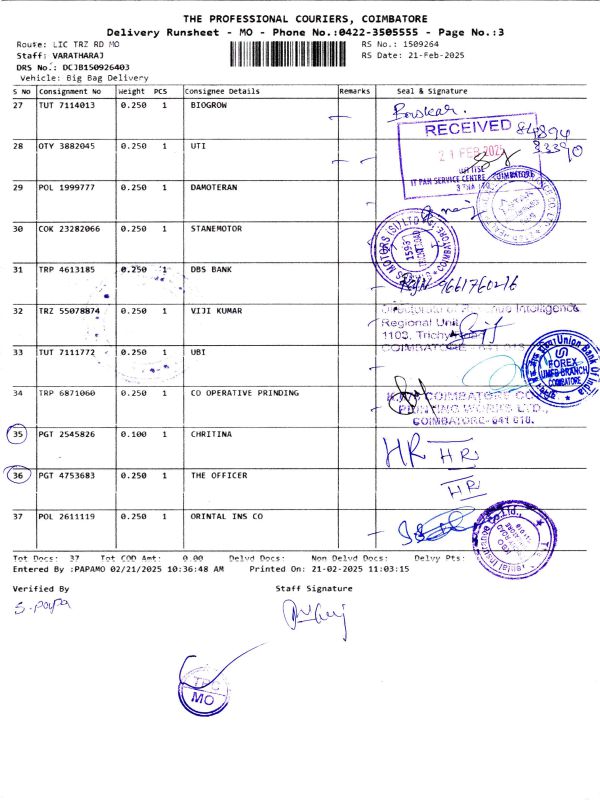 THE PROFESSIONAL COURIERS, COIMBATORE
Delivery Runsheet - MO - Phone No.:0422-3505555 - Page No.:3
Route: LIC TRZ RD MO RS No.: 1509264
Staff: VARATHARAJ RS Date: 21-Feb-2025
DRS No.: DCJB150926403
Vehicle: Big Bag Delivery
S No Consignment No Weight PCS Consignee Details Remarks Seal & Signature
27 TUT 7114013 0.250 1 BIOGROW
RECEIVED
28 OTY 3882045 0.250 1 UTI
21 FEB 2025
UTIITSL
IT PAN SERVICE CENTRE, COIMBATORE
29 POL 1999777 0.250 1 DAMOTERAN
30 COK 23282066 0.250 1 STANEMOTOR
31 TRP 4613185 0.250 1 DBS BANK
9661760216
32 TRZ 55078874 0.250 1 VIJI KUMAR
Directorate of Revenue Intelligence
Regional Unit
1103, Trichy
COIMBATORE - 641 018
33 TUT 7111772 0.250 1 UBI
Union Bank Of India
FOREX
UMFB BRANCH
COIMBATORE
34 TRP 6871060 0.250 1 CO OPERATIVE PRINDING
COIMBATORE CO
PRINTING WORKS LTD.,
COIMBATORE- 641 018.
35 PGT 2545826 0.100 1 CHRITINA
HR HR
36 PGT 4753683 0.250 1 THE OFFICER
HR
37 POL 2611119 0.250 1 ORINTAL INS CO
Tot Docs: 37 Tot COD Amt: 0.00 Delvd Docs: Non Delvd Docs: Delvy Pts:
Entered By :PAPAMO 02/21/2025 10:36:48 AM Printed On: 21-02-2025 11:03:15
Verified By Staff Signature
S. papa
TPC
MO